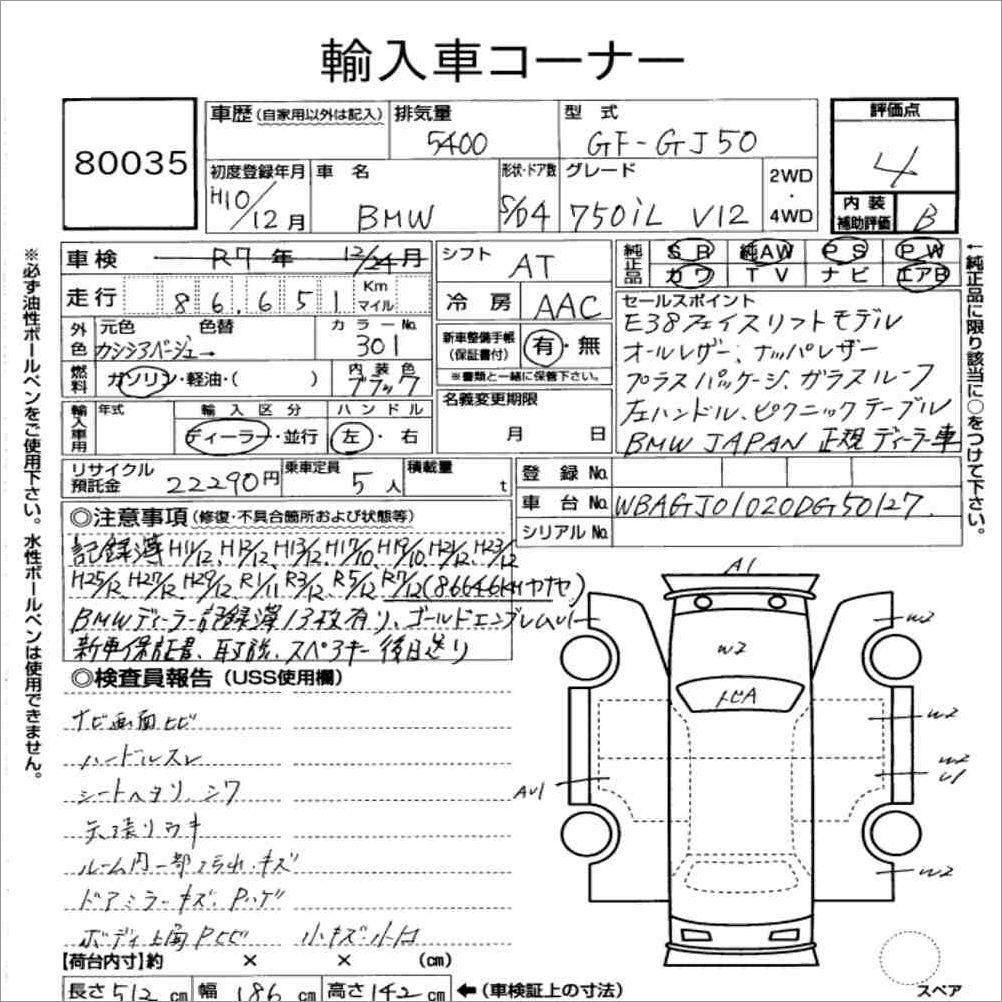 輸入車コーナー
80035
車歴(自家用以外は記入) 排気量 5400 型式 GF-GJ50 評価点 4
初度登録年月 H10/12月 車名 BMW 形状・ドア数 S/64 グレード 750iL V12 2WD・4WD 内装補助評価 B
車検 R7年 12/24月 シフト AT 純正品 SR 純AW PS PW
カワ TV ナビ エアB
走行 86,651 Km マイル 冷房 AAC セールスポイント
外色 元色 色替 カラーNo. 301 新車整備手帳(保証書付) 有・無 E38フェイスリフトモデル
カシシ3ベージュ→ ※書類と一緒に保管下さい。 オールレザー、ナッパレザー
燃料 ガソリン・軽油・( ) 内装色 ブラック 名義変更期限 プラスパッケージ、ガラスルーフ
輸入車用 年式 輸入区分 ハンドル 月 日 左ハンドル、ピクニックテーブル
ディーラー・並行 左・右 BMW JAPAN 正規ディーラー車
リサイクル預託金 22290円 乗車定員 5人 積載量 t 登録No.
車台No. WBAGJ01020DG50127
シリアルNo.
◎注意事項(修復・不具合箇所および状態等)
記録簿 H11/12、H12/12、H13/12、H17/10、H19/10、H21/12、H23/12
H25/12、H27/12、H29/12、R1/11、R3/12、R5/12、R7/12(86646KM
BMWディーラー記録簿13枚有り、ゴールドエンブレム
新車保証書、取説、スペアキー後日送り
◎検査員報告(USS使用欄)
ナビ画面ヒビ
ハンドルスレ
シートヘタリ、シワ
天張りウキ
ルーム内一部汚れ・キズ
ドアミラーキズ、Pハゲ
ボディ上面Pヒビ 小キズ・小凹
【荷台内寸】約 × × (cm)
長さ512cm 幅186cm 高さ142cm ←(車検証上の寸法)
A1
W2
W2
トビA
W2
W2
U1
AU1
W2
スペア
※必ず油性ボールペンをご使用下さい。水性ボールペンは使用できません。
←純正品に限り該当に○をつけて下さい。